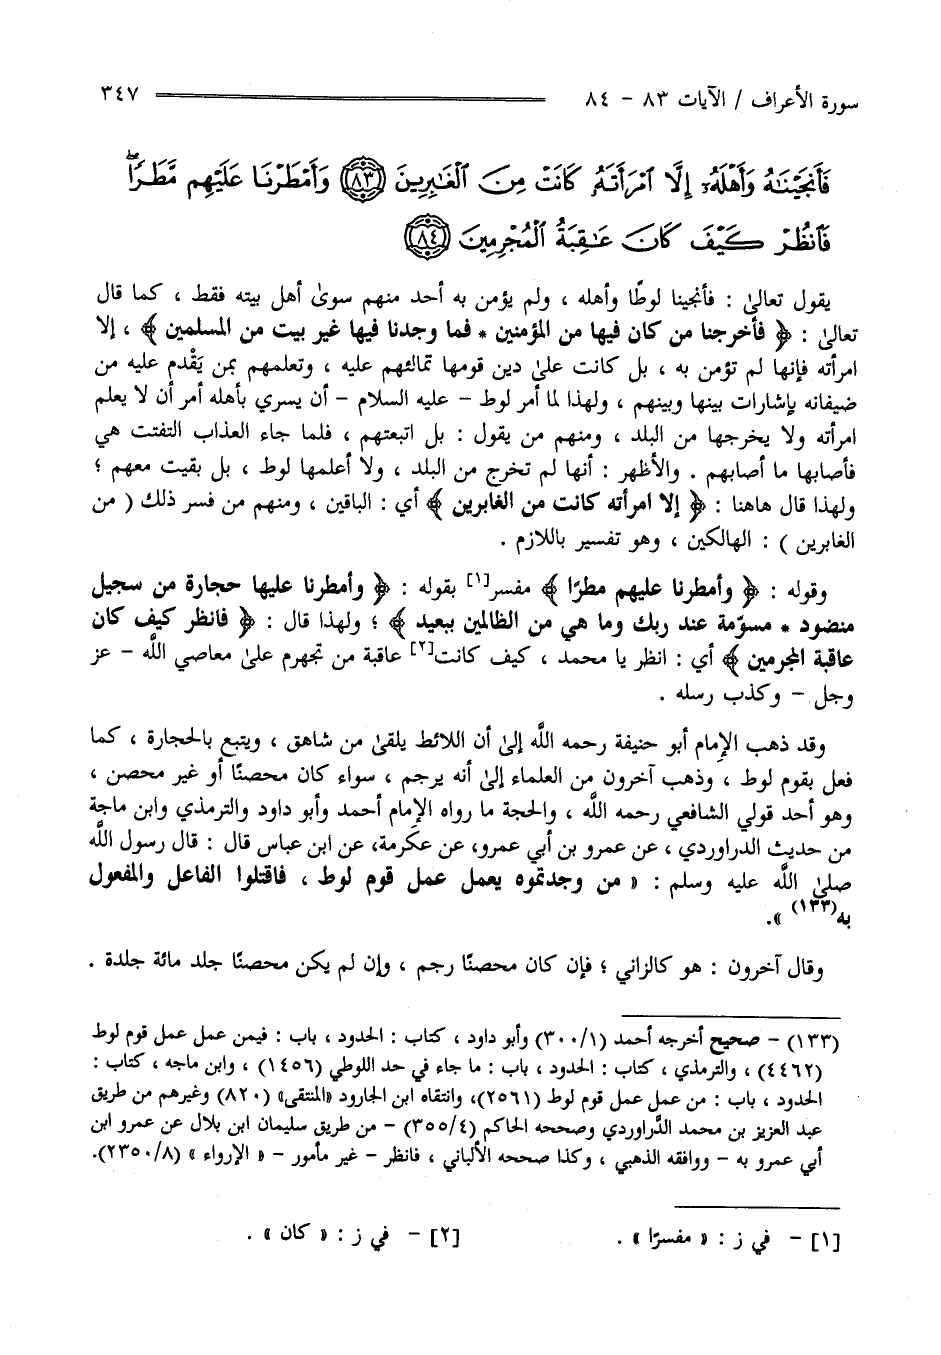 سورة الأعراف / الآيات ٨٣ - ٨٤ ٣٤٧
فَأَنجَيْنَٰهُ وَأَهْلَهُۥٓ إِلَّا ٱمْرَأَتَهُۥ كَانَتْ مِنَ ٱلْغَٰبِرِينَ ﴿٨٣﴾ وَأَمْطَرْنَا عَلَيْهِم مَّطَرًا ۖ
فَٱنظُرْ كَيْفَ كَانَ عَٰقِبَةُ ٱلْمُجْرِمِينَ ﴿٨٤﴾
يقول تعالىٰ : فأنجينا لوطًا وأهله ، ولم يؤمن به أحد منهم سوىٰ أهل بيته فقط ، كما قال
تعالىٰ : ﴿ فأخرجنا من كان فيها من المؤمنين * فما وجدنا فيها غير بيت من المسلمين ﴾ ، إلا
امرأته فإنها لم تؤمن به ، بل كانت علىٰ دين قومها تمالئهم عليه ، وتعلمهم بمن يَقْدم عليه من
ضيفانه بإشارات بينها وبينهم ، ولهذا لما أمر لوط - عليه السلام - أن يسري بأهله أمر أن لا يعلم
امرأته ولا يخرجها من البلد ، ومنهم من يقول : بل اتبعتهم ، فلما جاء العذاب التفتت هي
فأصابها ما أصابهم . والأظهر : أنها لم تخرج من البلد ، ولا أعلمها لوط ، بل بقيت معهم ؛
ولهذا قال هاهنا : ﴿ إلا امرأته كانت من الغابرين ﴾ أي : الباقين ، ومنهم من فسر ذلك ( من
الغابرين ) : الهالكين ، وهو تفسير باللازم .
وقوله : ﴿ وأمطرنا عليهم مطرًا ﴾ مفسر[١] بقوله : ﴿ وأمطرنا عليها حجارة من سجيل
منضود * مسوّمة عند ربك وما هي من الظالمين ببعيد ﴾ ؛ ولهذا قال : ﴿ فانظر كيف كان
عاقبة المجرمين ﴾ أي : انظر يا محمد ، كيف كانت[٢] عاقبة من تجهرم علىٰ معاصي اللَّه - عز
وجل - وكذب رسله .
وقد ذهب الإمام أبو حنيفة رحمه اللَّه إلىٰ أن اللائط يلقىٰ من شاهق ، ويتبع بالحجارة ، كما
فعل بقوم لوط ، وذهب آخرون من العلماء إلىٰ أنه يرجم ، سواء كان محصنًا أو غير محصن ،
وهو أحد قولي الشافعي رحمه اللَّه ، والحجة ما رواه الإمام أحمد وأبو داود والترمذي وابن ماجة
من حديث الدراوردي ، عن عمرو بن أبي عمرو، عن عكرمة، عن ابن عباس قال : قال رسول اللَّه
صلىٰ اللَّه عليه وسلم : « من وجدتموه يعمل عمل قوم لوط ، فاقتلوا الفاعل والمفعول
به(١٣٣) ».
وقال آخرون : هو كالزاني ؛ فإن كان محصنًا رجم ، وإن لم يكن محصنًا جلد مائة جلدة .
(١٣٣) - صحيح أخرجه أحمد (٣٠٠/١) وأبو داود ، كتاب : الحدود ، باب : فيمن عمل عمل قوم لوط
(٤٤٦٢) ، والترمذي ، كتاب : الحدود ، باب : ما جاء في حد اللوطي (١٤٥٦) ، وابن ماجه ، كتاب :
الحدود ، باب : من عمل عمل قوم لوط (٢٥٦١)، وانتقاه ابن الجارود «المنتقى» (٨٢٠) وغيرهم من طريق
عبد العزيز بن محمد الدَّراوردي وصححه الحاكم (٣٥٥/٤) - من طريق سليمان ابن بلال عن عمرو ابن
أبي عمرو به - ووافقه الذهبي ، وكذا صححه الألباني ، فانظر - غير مأمور - « الإرواء » (٢٣٥٠/٨).
[١] - في ز : « مفسرًا » . [٢] - في ز : « كان » .